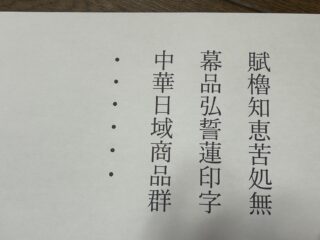 賦櫓知恵苦処無
幕品弘誓蓮印字
中華日域商品群
・・・・・・